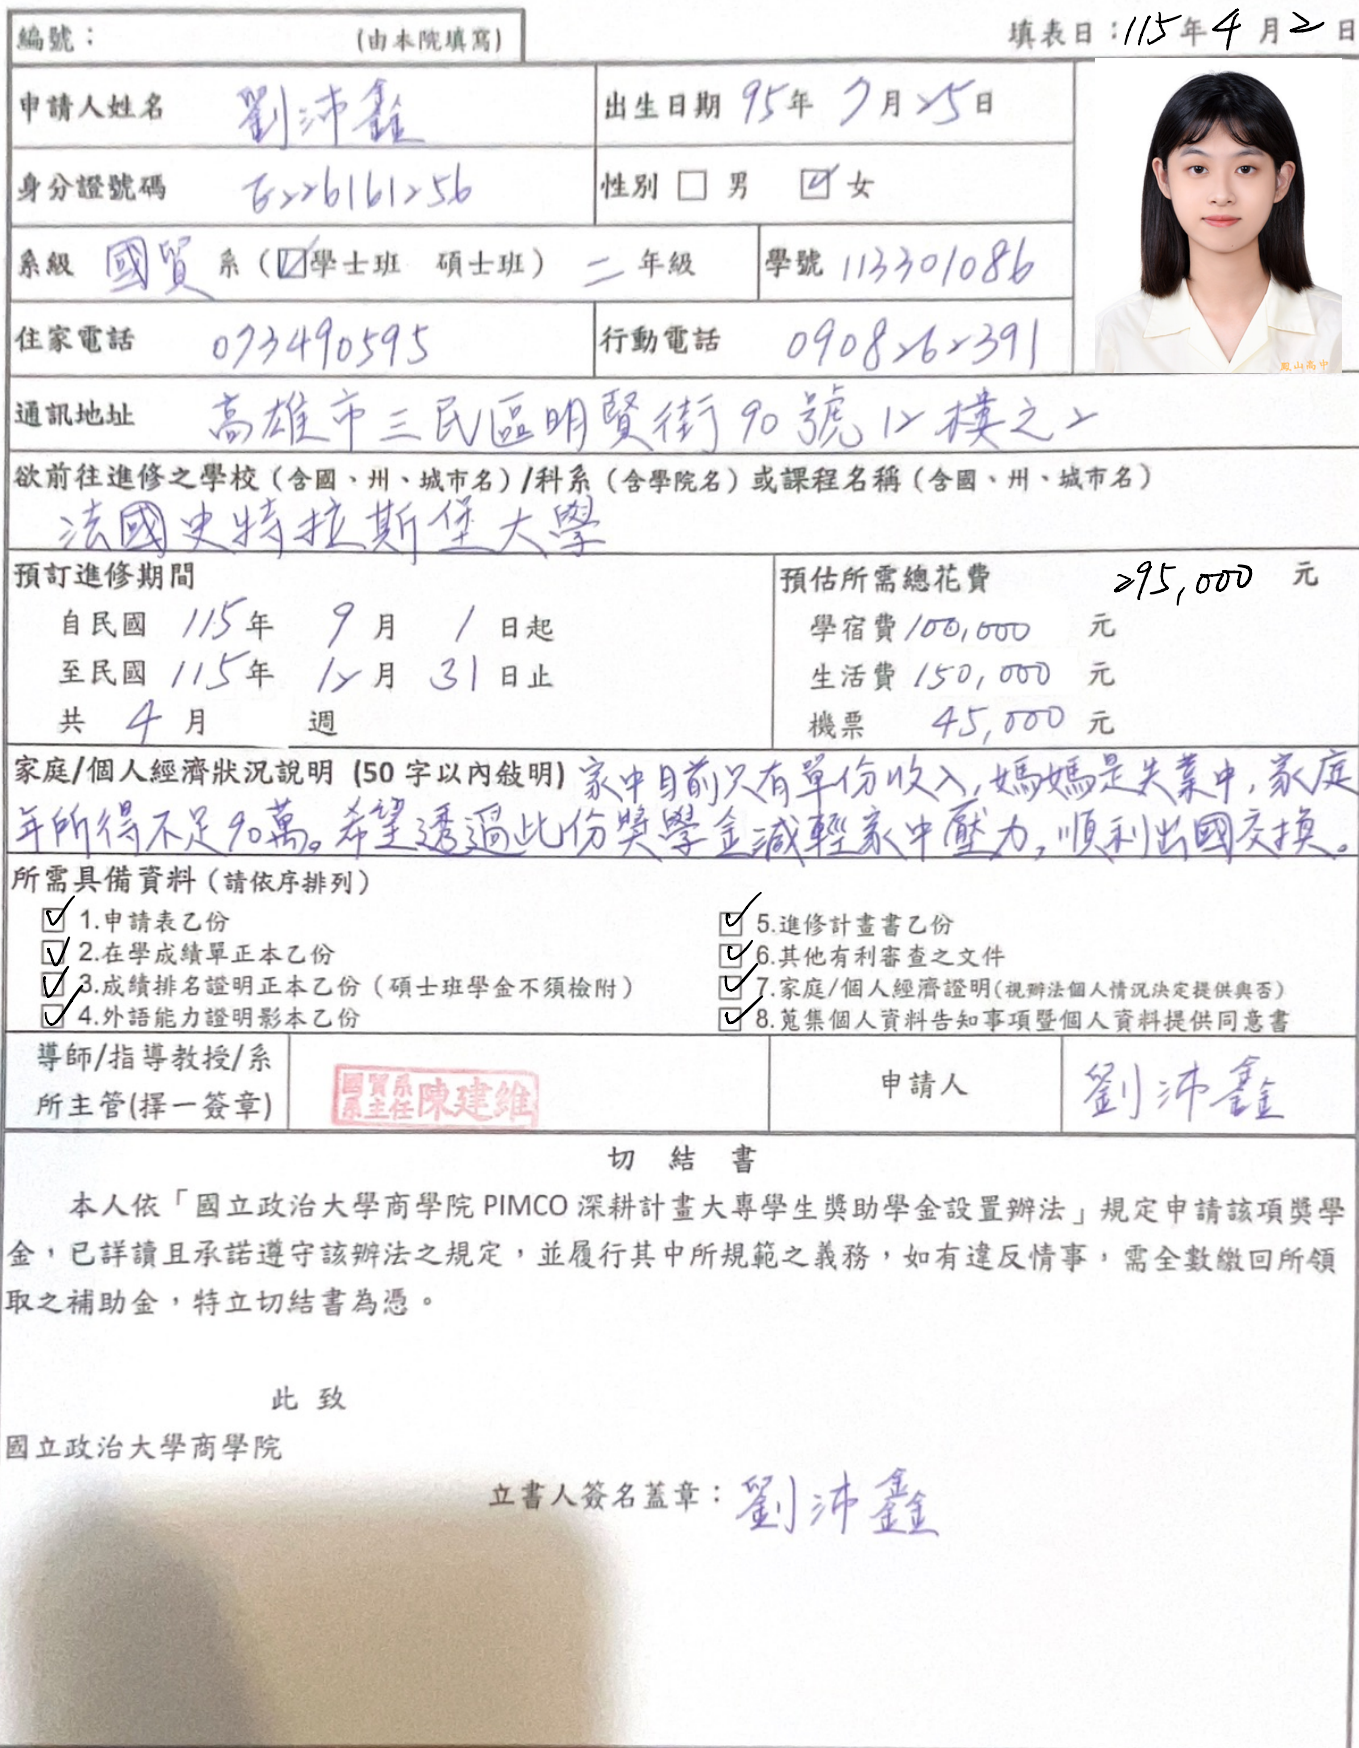 編號： （由本院填寫） 填表日：115年4月2日
申請人姓名 劉沛鑫 出生日期 95年7月25日
身分證號碼 E226161256 性別 □ 男 ☑ 女
系級 國貿 系（☑學士班 碩士班） 二 年級 學號 113301086
住家電話 073490595 行動電話 0908262391
鳳山高中
通訊地址 高雄市三民區明賢街90號12樓之2
欲前往進修之學校（含國、州、城市名）/科系（含學院名）或課程名稱（含國、州、城市名）
法國史特拉斯堡大學
預訂進修期間 預估所需總花費 295,000 元
自民國 115年 9月 1日起 學宿費 100,000 元
至民國 115年 12月 31日止 生活費 150,000 元
共 4 月 週 機票 45,000 元
家庭/個人經濟狀況說明 (50 字以內敍明) 家中目前只有單份收入，媽媽是失業中，家庭
年所得不足90萬。希望透過此份獎學金減輕家中壓力，順利出國交換。
所需具備資料（請依序排列）
☑ 1.申請表乙份 ☑ 5.進修計畫書乙份
☑ 2.在學成績單正本乙份 ☑ 6.其他有利審查之文件
☑ 3.成績排名證明正本乙份（碩士班學金不須檢附） ☑ 7.家庭/個人經濟證明(視辦法個人情況決定提供與否)
☑ 4.外語能力證明影本乙份 ☑ 8.蒐集個人資料告知事項暨個人資料提供同意書
導師/指導教授/系
所主管(擇一簽章) 國貿系系主任陳建維 申請人 劉沛鑫
切 結 書
本人依「國立政治大學商學院 PIMCO 深耕計畫大專學生獎助學金設置辦法」規定申請該項獎學
金，已詳讀且承諾遵守該辦法之規定，並履行其中所規範之義務，如有違反情事，需全數繳回所領
取之補助金，特立切結書為憑。
此 致
國立政治大學商學院
立書人簽名蓋章：劉沛鑫